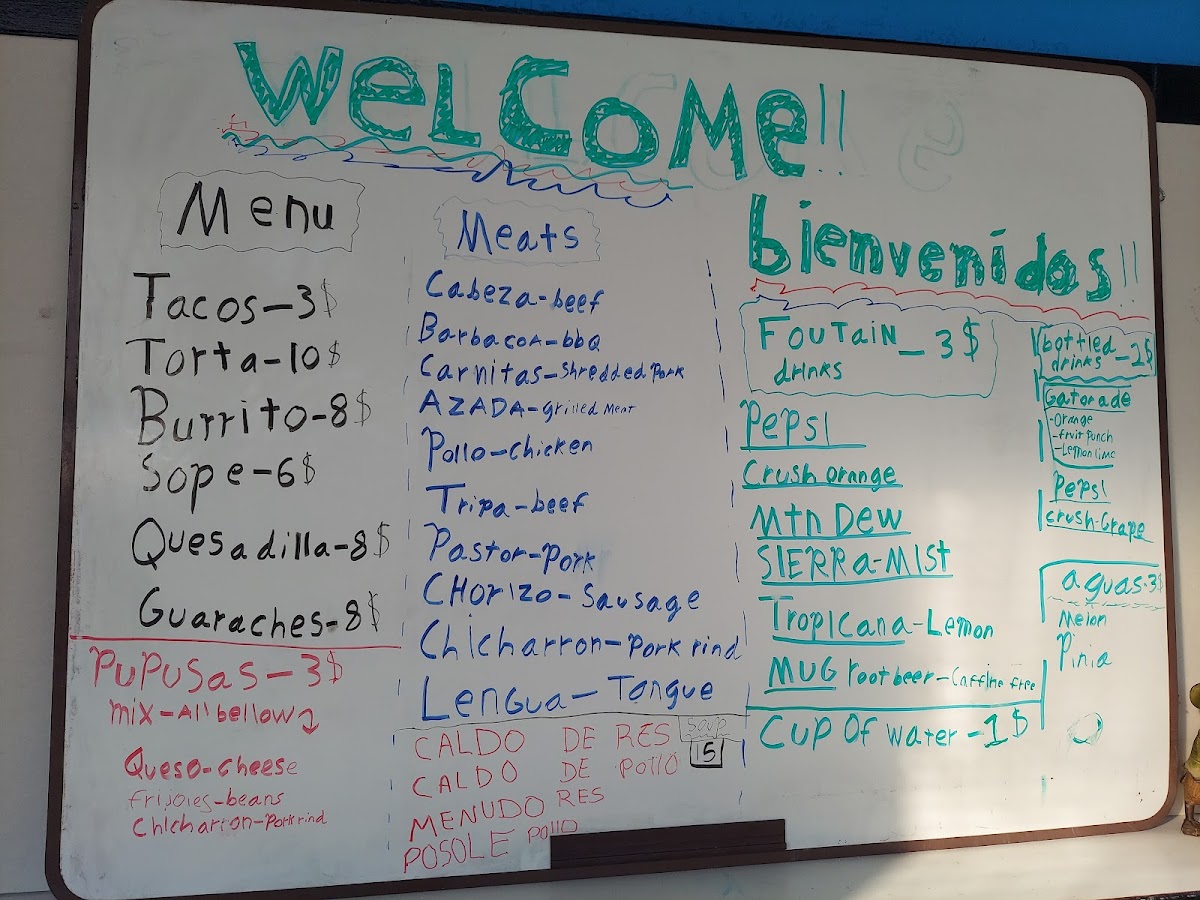 WeLCoMe!!
Menu
Tacos-3$
Torta-10$
Burrito-8$
Sope-6$
Quesadilla-8$
Guaraches-8$
PUPUSas-3$
mix-All bellow
Queso-cheese
frijoles-beans
Chicharron-Porkrind
Meats
Cabeza-beef
Barbacoa-bbq
Carnitas-shredded Pork
AZADA-grilled Meat
Pollo-Chicken
Tripa-beef
Pastor-Pork
CHorizo-Sausage
Chicharron-Pork rind
Lengua-Tongue
SOUP
15
CALDO DE RES
CALDO DE POLLO
MENUDO RES
POSOLE POllO
bienvenidos!!
FOUTAIN_3$
drinks
Pepsi
Crush orange
Mtn Dew
SIERRA-MISt
Tropicana-Lemon
MUG root beer-Caffine free
Cup Of water-1$
bottled
drinks-2$
Gatorade
-Orange
-fruit Punch
-Lemon lime
Pepsi
Crush-Grape
aguas-3$
Melon
Pinia